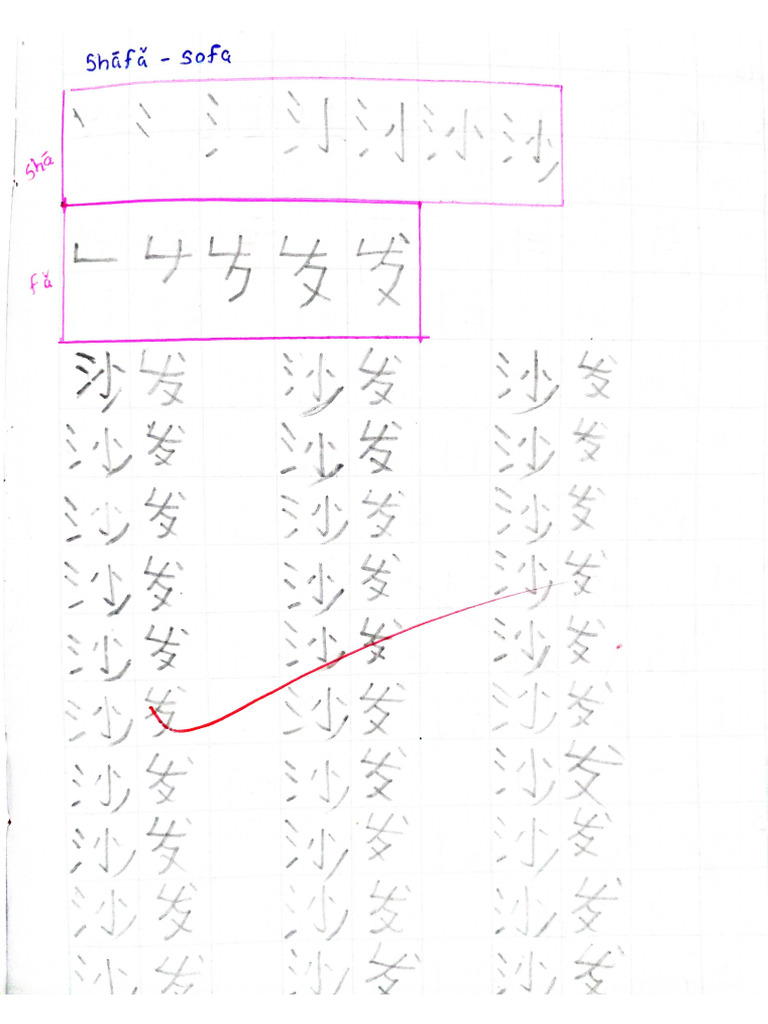 Shāfǎ - sofa
shā 沙
fǎ 发
沙发 沙发 沙发
沙发 沙发 沙发
沙发 沙发 沙发
沙发 沙发 沙发
沙发 沙发 沙发
沙发 沙发 沙发
沙发 沙发 沙发
沙发 沙发 沙发
沙发 沙发 沙发
沙发 沙发 沙发